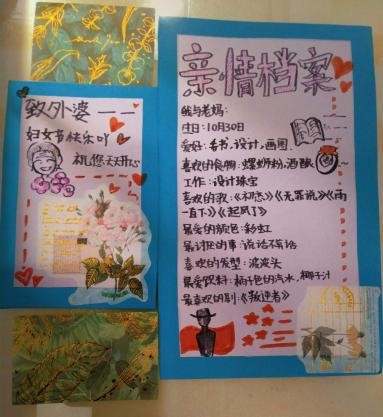 致外婆——
妇女节快乐吖
祝您天天开心
亲情档案
我与老妈:
生日:10月30日
爱好:看书,设计,画图
喜欢的食物:螺蛳粉,酒酿
工作:设计珠宝
喜欢的歌:《初恋》《无罪说》《雨
一直下》《起风了》
最爱的颜色:彩虹
最讨厌的事:说话不算话
喜欢的发型:波浪头
最爱饮料:橘子色的汽水,椰子汁
最喜欢的剧:《叛逆者》